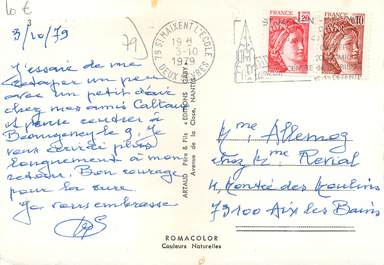 10 €
3/10/79
79
J'essaie de me
retaper un peu
avec un petit séjour
chez mes amis
et pense rentrer à
le 9. Je
vous écrirai plus
longuement à mon
retour. Bon courage
pour la cure.
Je vous embrasse
79 ST MAIXENT L'ECOLE
19 H
3-10
1979
DEUX SEVRES
FRANCE 1,20
FRANCE 0,10
ARTAUD Père & Fils - EDITIONS
Avenue de la Close, NANTES
Mme Allemoz
chez Mme Revial
4, Montée des Moulins
73100 Aix les Bains
ROMACOLOR
Couleurs Naturelles